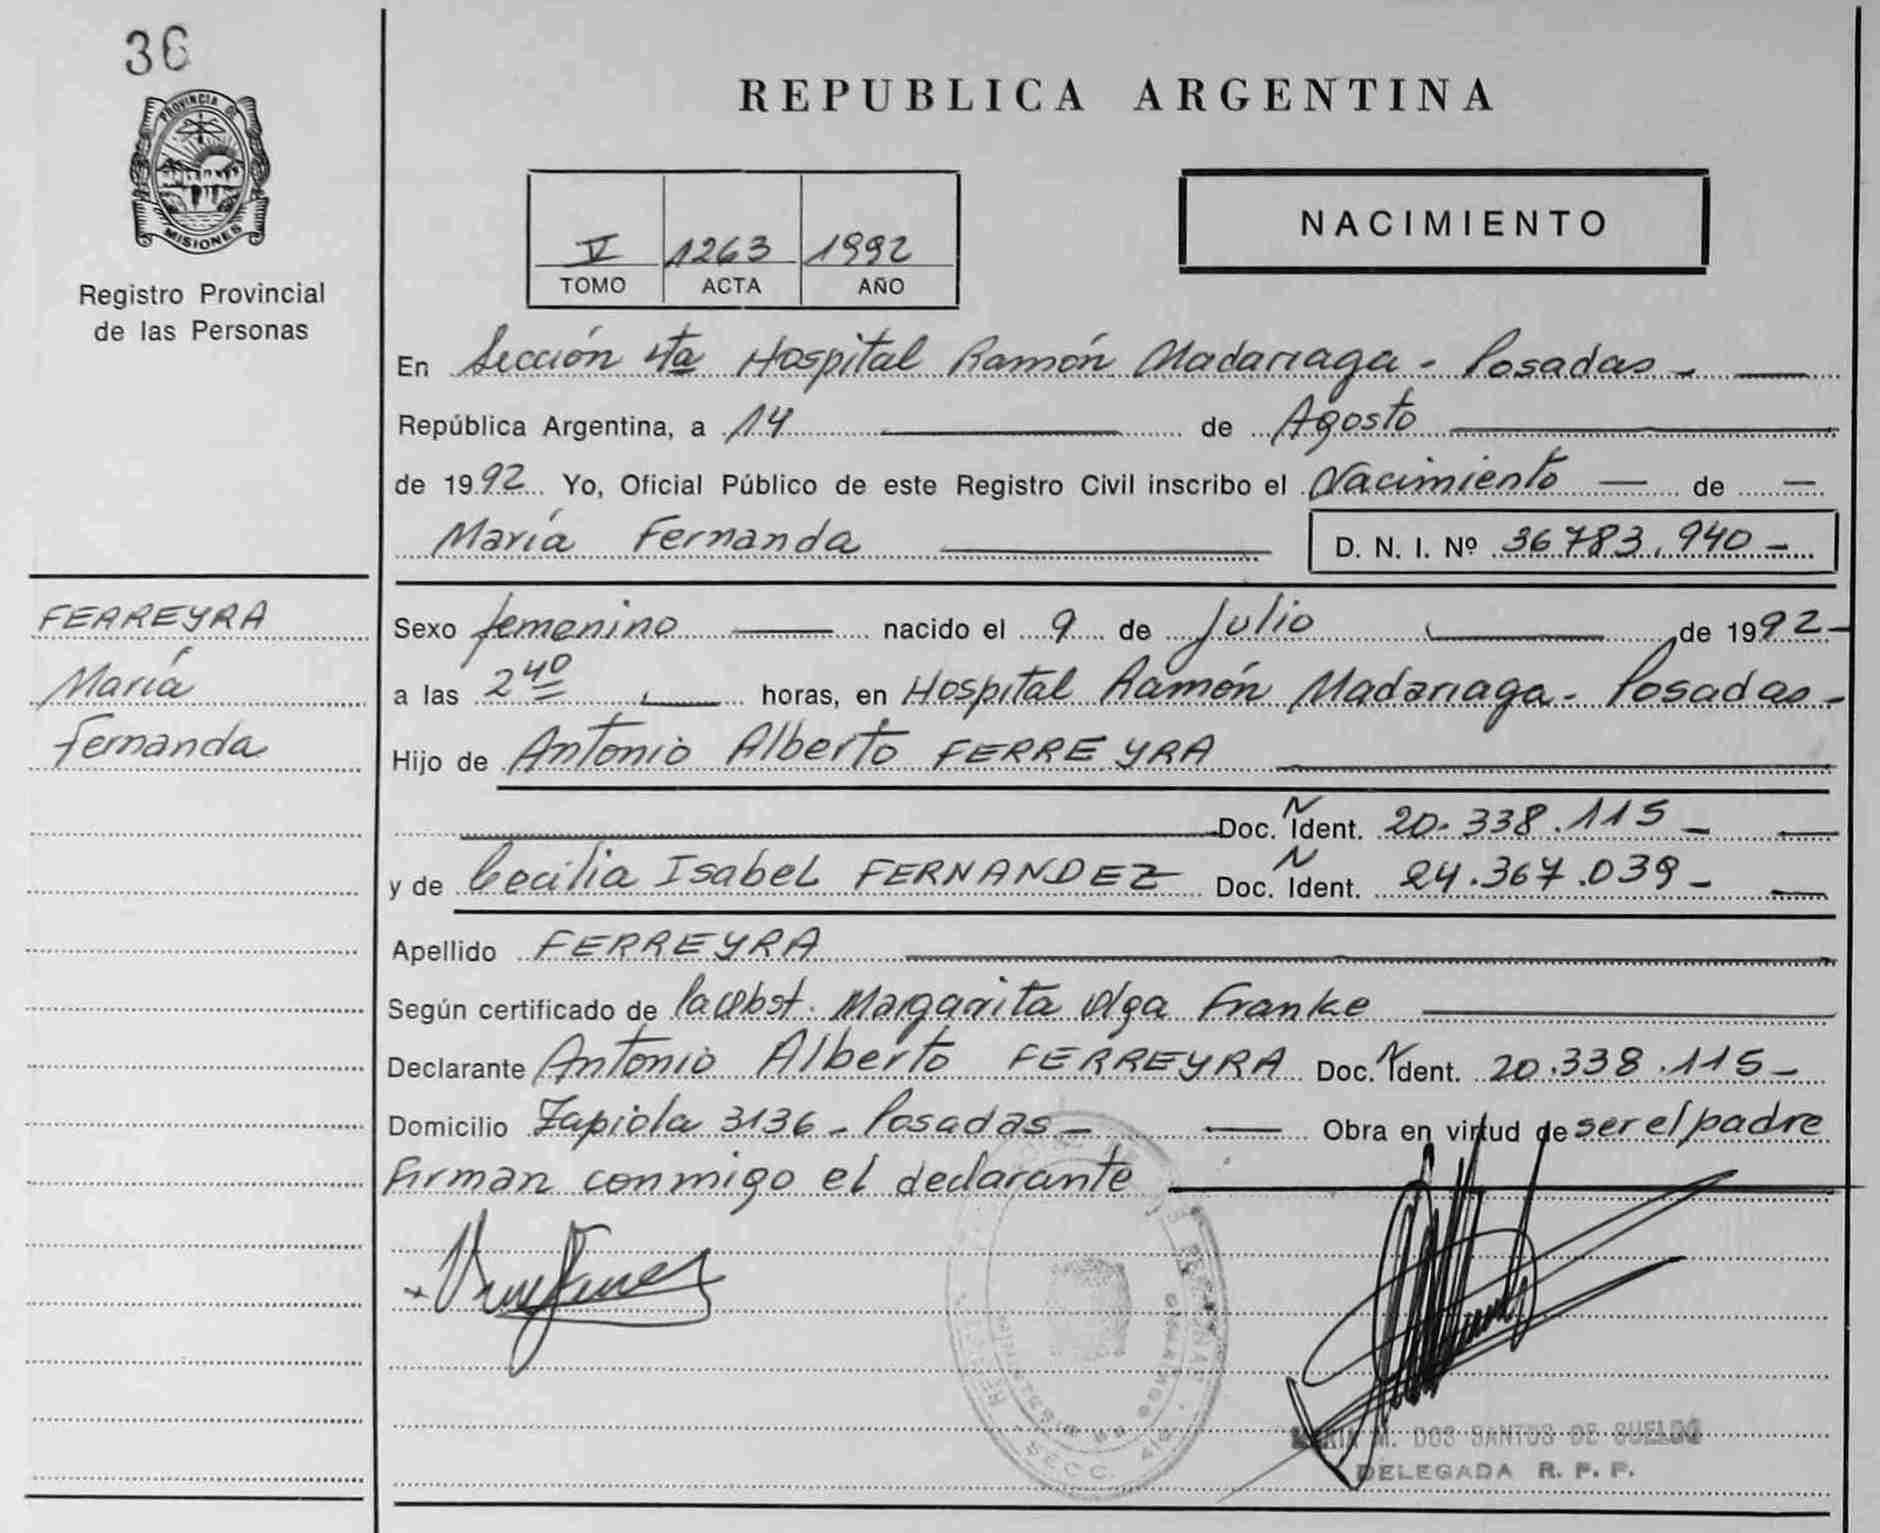 36
PROVINCIA DE
MISIONES
Registro Provincial
de las Personas
REPUBLICA ARGENTINA
V 1263 1992
TOMO ACTA AÑO
NACIMIENTO
En Sección 4ta Hospital Ramón Madariaga - Posadas -
República Argentina, a 14 de Agosto
de 1992 Yo, Oficial Público de este Registro Civil inscribo el Nacimiento de
María Fernanda D. N. I. Nº 36783.940 -
FERREYRA
María
Fernanda
Sexo femenino nacido el 9 de Julio de 1992 -
a las 2 40 horas, en Hospital Ramón Madariaga - Posadas -
Hijo de Antonio Alberto FERREYRA
Doc. N Ident. 20.338.115 -
y de Cecilia Isabel FERNANDEZ Doc. N Ident. 24.367.039 -
Apellido FERREYRA
Según certificado de la Obst. Margarita Olga Franke
Declarante Antonio Alberto FERREYRA Doc. N Ident. 20.338.115 -
Domicilio Zapiola 3136 - Posadas - Obra en virtud de ser el padre
Firman conmigo el declarante
SECC. 4ta
M. DOS SANTOS DE SUELDO
DELEGADA R. P. P.